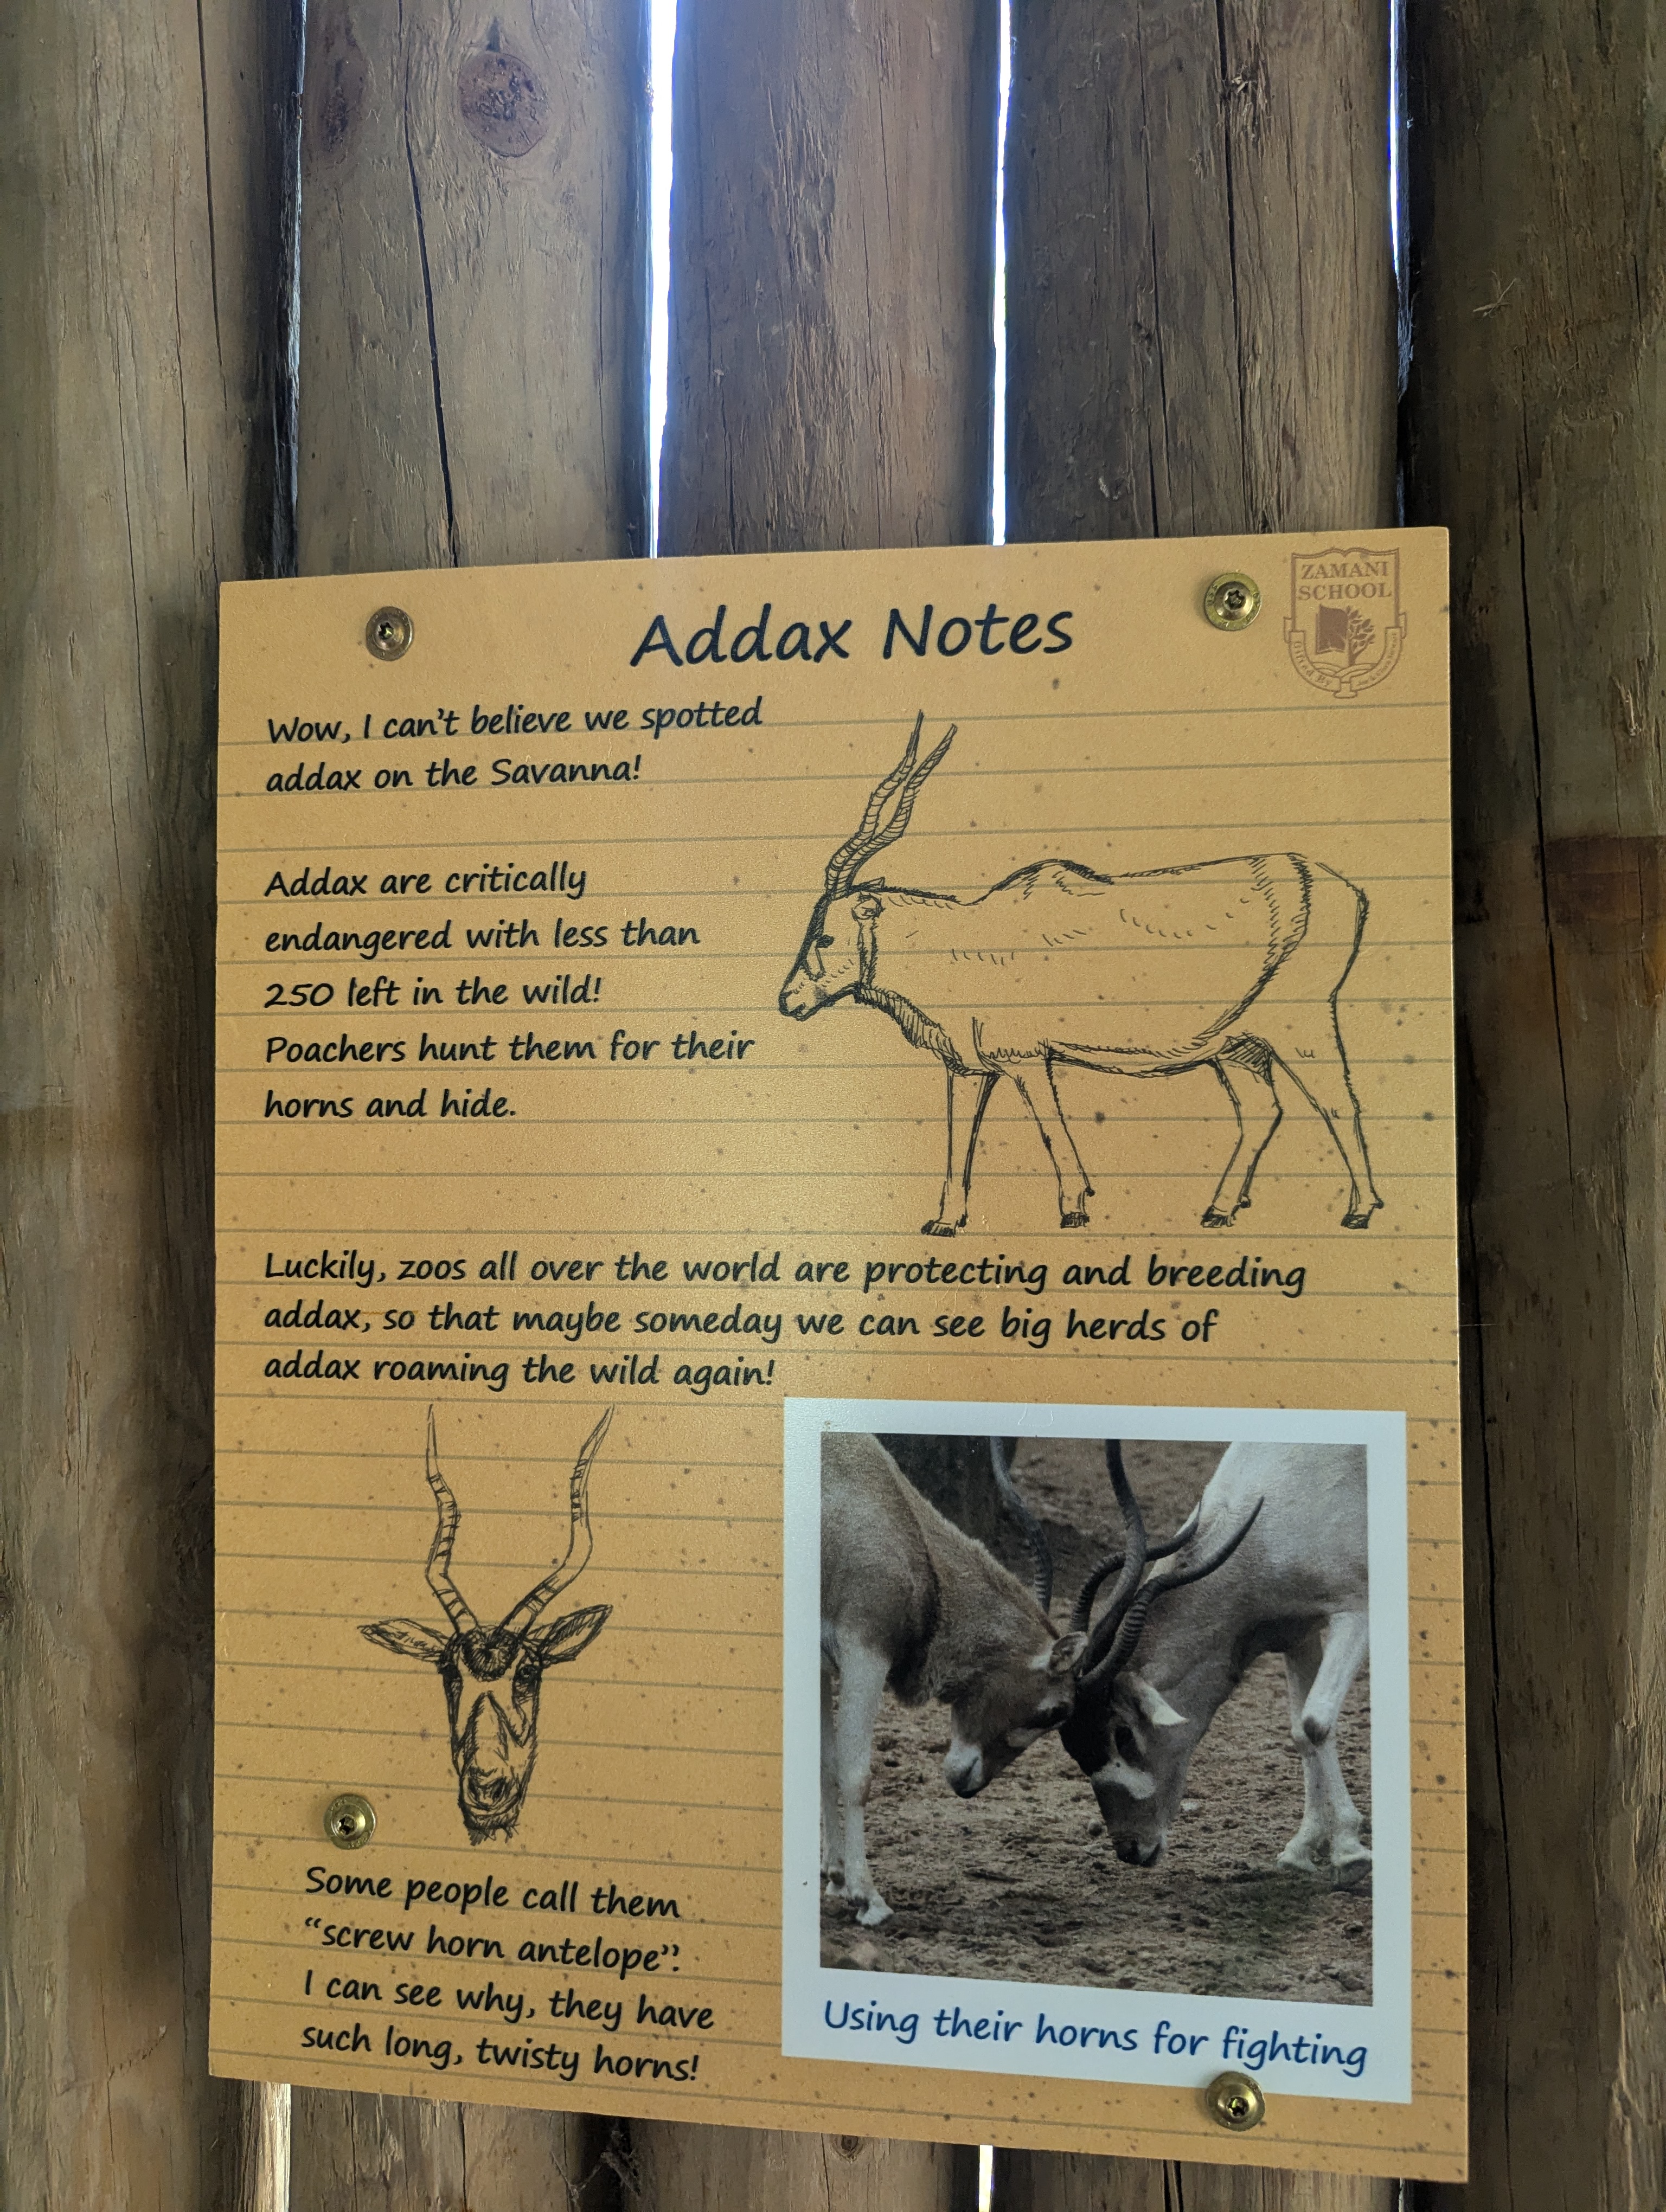 Addax Notes
ZAMANI
SCHOOL
Gifted By
Wow, I can't believe we spotted
addax on the Savanna!
Addax are critically
endangered with less than
250 left in the wild!
Poachers hunt them for their
horns and hide.
Luckily, zoos all over the world are protecting and breeding
addax, so that maybe someday we can see big herds of
addax roaming the wild again!
Some people call them
“screw horn antelope”.
I can see why, they have
such long, twisty horns!
Using their horns for fighting